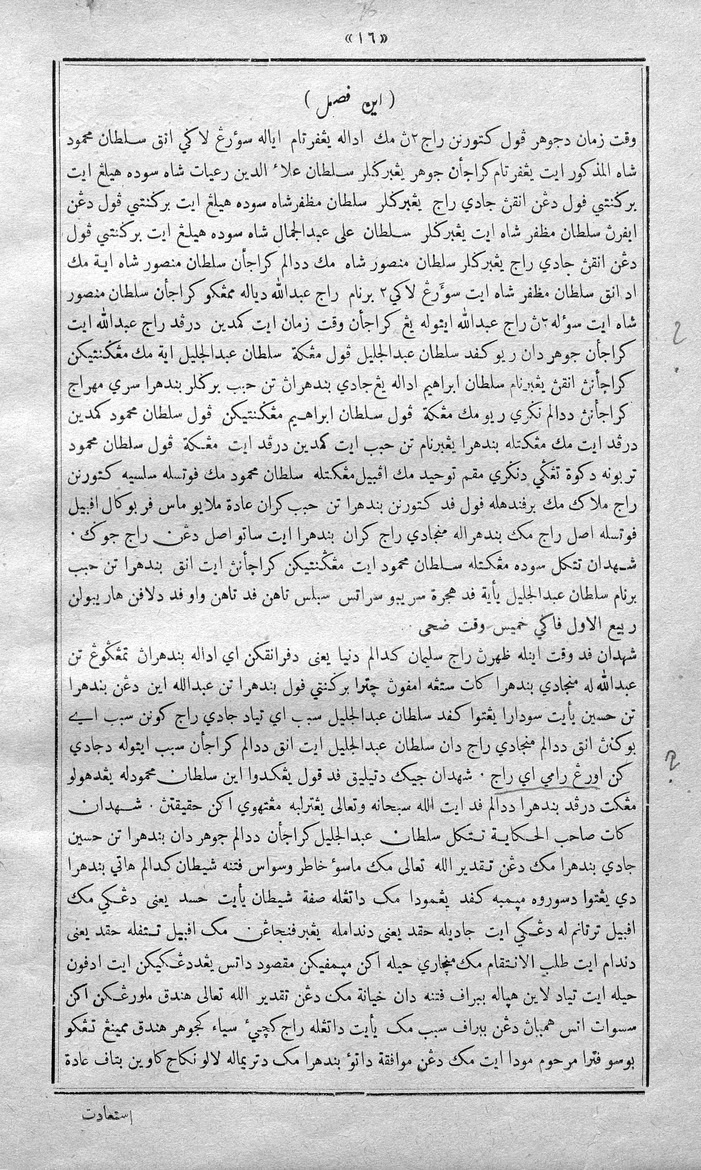 «١٦»
( اين فصل )
وقت زمان دجوهر ڤول كتورنن راج٢ث مك اداله يڠفرتام اياله سؤرڠ لاكي انق سلطان محمود
شاه المذكور ايت يڠفرتام كراجأن جوهر يڠبركلر سلطان علاء الدين رعيات شاه سوده هيلڠ ايت
بركنتي ڤول دڠن انقڽ جادي راج يڠبركلر سلطان مظفرشاه سوده هيلڠ ايت بركنتي ڤول دڠن
ايفرڽ سلطان مظفر شاه ايت يڠبركلر سلطان على عبدالجمال شاه سوده هيلڠ ايت بركنتي ڤول
دڠن انقڽ جادي راج يڠبركلر سلطان منصور شاه مك ددالم كراجأن سلطان منصور شاه اية مك
اد انق سلطان مظفر شاه ايت سؤرڠ لاكي٢ برنام راج عبدالله دياله ممڠكو كراجأن سلطان منصور
شاه ايت سؤله٢ن راج عبدالله ايتوله يڠ كراجأن وقت زمان ايت كمدين درڤد راج عبدالله ايت
كراجأن جوهر دان ريو كفد سلطان عبدالجليل ڤول مڠكة سلطان عبدالجليل اية مك مڠكنتيكن
كراجأنڽ انقڽ يڠبرنام سلطان ابراهيم اداله يڠ جادي بندهراڽ تن حبب بركلر بندهرا سري مهراج
كراجأنڽ ددالم نكري ريو مك مڠكة ڤول سلطان ابراهيم مڠكنتيكن ڤول سلطان محمود كمدين
درڤد ايت مك مڠكتله بندهرا يڠبرنام تن حبب ايت كمدين درڤد ايت مڠكة ڤول سلطان محمود
تربونه دكوة تڠكي دنكري مقم توحيد مك اڤبيل مڠكتله سلطان محمود مك فوتسله سلسيه كتورنن
راج ملاك مك برفندهله ڤول فد كتورنن بندهرا تن حبب كران عادة ملايو ماس ڤربوكال اڤبيل
فوتسله اصل راج مك بندهراله منجادي راج كران بندهرا ايت ساتو اصل دڠن راج جوك ·
شهدان تتكل سوده مڠكتله سلطان محمود ايت مڠكنتيكن كراجأنڽ ايت انق بندهرا تن حبب
برنام سلطان عبدالجليل يأية فد هجرة سريبو سراتس سبلس تاهن فد تاهن واو فد دلافن هاريبولن
ربيع الاول فاكي خميس وقت ضحى
شهدان فد وقت اينله ظهرڽ راج سليمان كدالم دنيا يعنى دفرانقكن اي اداله بندهراڽ تمڠكوڠ تن
عبدالله له منجادي بندهرا كات ستڠه امفون چترا بركنتي فول بندهرا تن عبدالله اين دڠن بندهرا
تن حسين يأيت سودارا يڠتوا كفد سلطان عبدالجليل سبب اي تياد جادي راج كونن سبب اي
بوكنڽ انق ددالم منجادي راج دان سلطان عبدالجليل ايت انق ددالم كراجأن سبب ايتوله دجادي
كن اورڠ رامي اي راج · شهدان جيك دتيليق فد قول يڠكدوا اين سلطان محمودله يڠدهولو
مڠكت درڤد بندهرا ددالم فد ايت الله سبحانه وتعالى يڠترلبه مڠتهوي اكن حقيقتڽ · شهدان
كات صاحب الحكاية تتكل سلطان عبدالجليل كراجأن ددالم جوهر دان بندهرا تن حسين
جادي بندهرا مك دڠن تقدير الله تعالى مك ماسوٴ خاطر وسواس فتنه شيطان كدالم هاتي بندهرا
دي يڠتوا دسوروه ميمبه كفد يڠمودا مك داتڠله صفة شيطان يأيت حسد يعنى دڠكي مك
اڤبيل ترتانم له دڠكي ايت جاديله حقد يعنى دندامله يڠبرفنجاڠن مك اڤبيل تتفله حقد يعنى
دندام ايت طلب الانتقام مك منجاري حيله اكن ميمفيكن مقصود داتس يڠددڠكيكن ايت ادفون
حيله ايت تياد لاين هياله ببراف فتنه دان خيانة مك دڠن تقدير الله تعالى هندق ملورڠكن اكن
سسوات اتس همباڽ دڠن ببراف سبب مك يأيت داتڠله راج كچيٴ سياء كجوهر هندق ممينڠ تڠكو
بوسو فترا مرحوم مودا ايت مك دڠن موافقة داتوٴ بندهرا مك دتريماله لالو نكاح كاوين بتاف عادة
استعادت